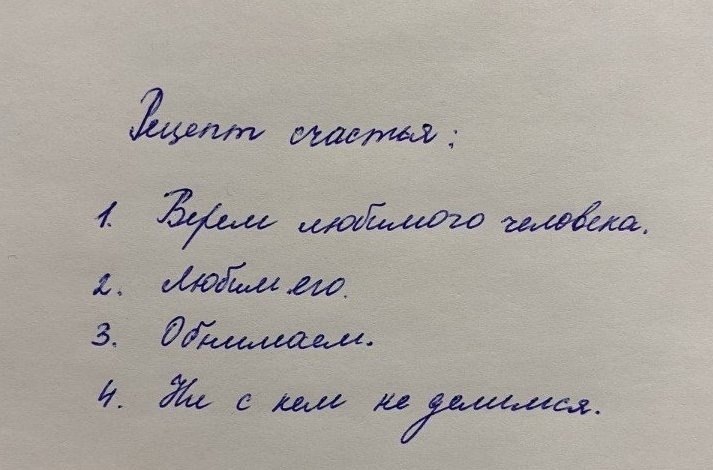 Рецепт счастья:
1. Берем любимого человека.
2. Любим его.
3. Обнимаем.
4. Ни с кем не делимся.